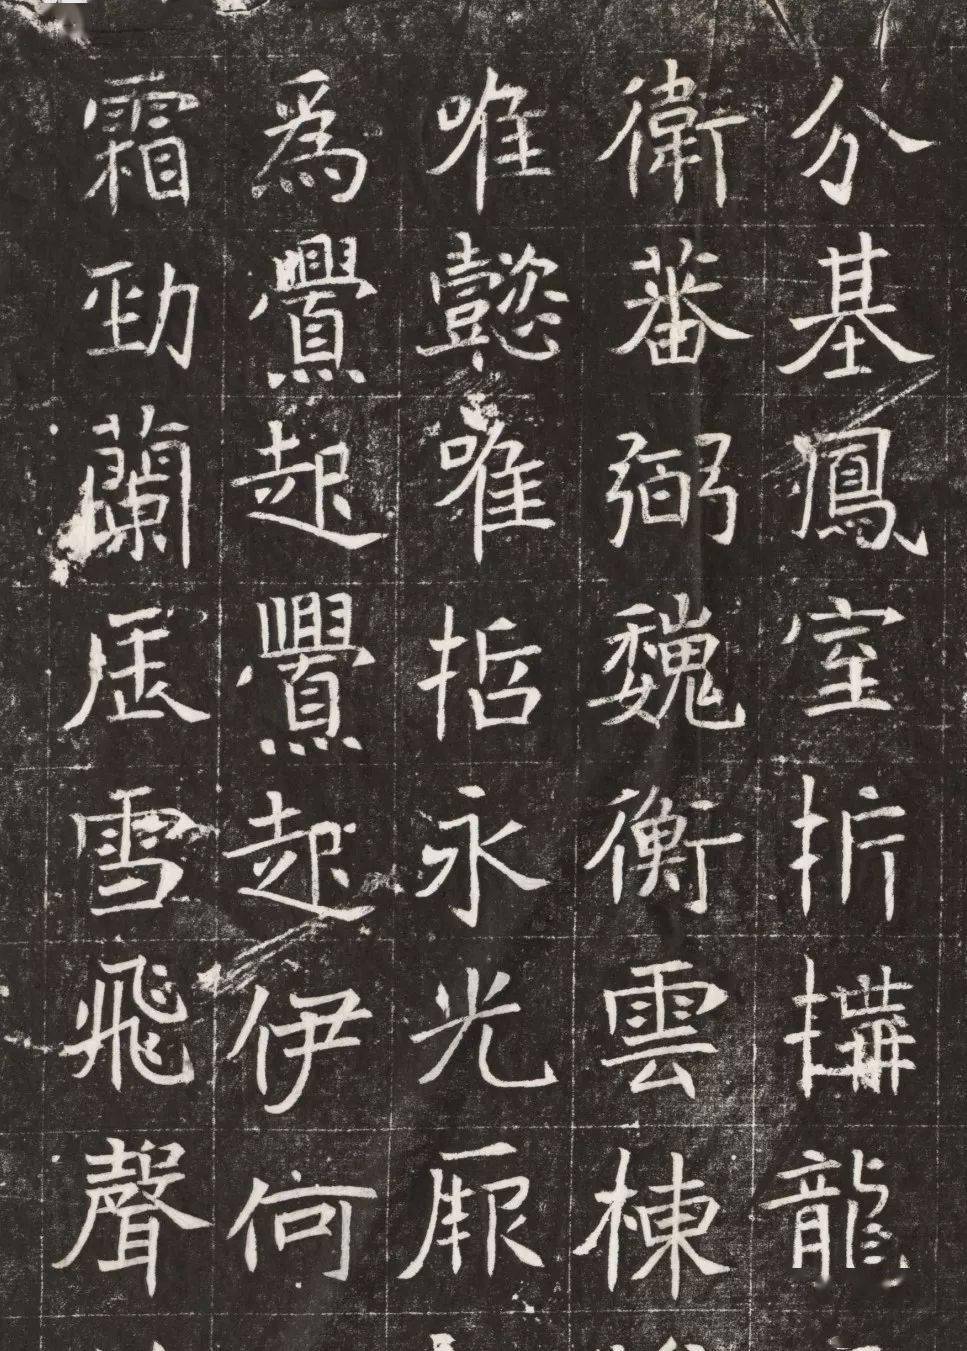 分基鳳室折搆龍
衛蕃弼魏衡雲棟
唯懿唯括永光厥
爲舋起舋起伊何
霜勁蘭居雪飛聲